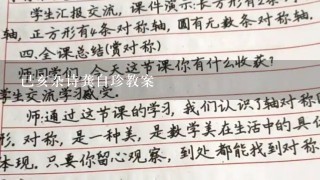 学生汇报交流，课件演示：长方形有2条
轴，正方形有4条对称轴，圆有无数条对称轴。
四.全课总结（赏对称）
今天这节课你有什么收获？
已亥杂诗龚自珍教案
学生交流学习感受。
师：通过这节课的学习，我们认识了轴对称
形.对称，是一种美，是数学美在生活中的具
体现.只要你留心观察，到处都能找到对称